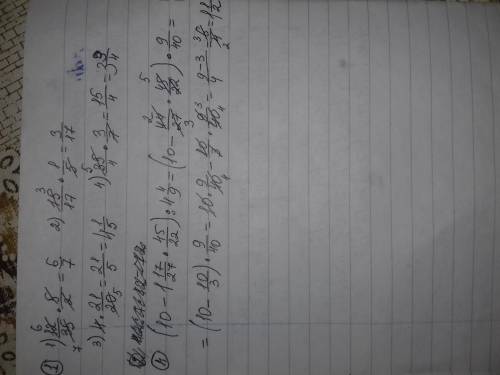 ① 1) 12/35 · 5/2 = 6/7 2) 18/17 · 1/6 = 3/17
3) 4 · 21/20 = 21/5 = 4 1/5 4) 35/4 · 3/7 = 15/4 = 3 3/4
④ (10 - 1 17/27 · 45/22) : 4 4/9 = (10 - 44/27 · 45/22) · 9/40 =
= (10 - 10/3) · 9/40 = 10 · 9/40 - 10/3 · 9/40 = 9-3/4 = 6/4 = 1 1/2